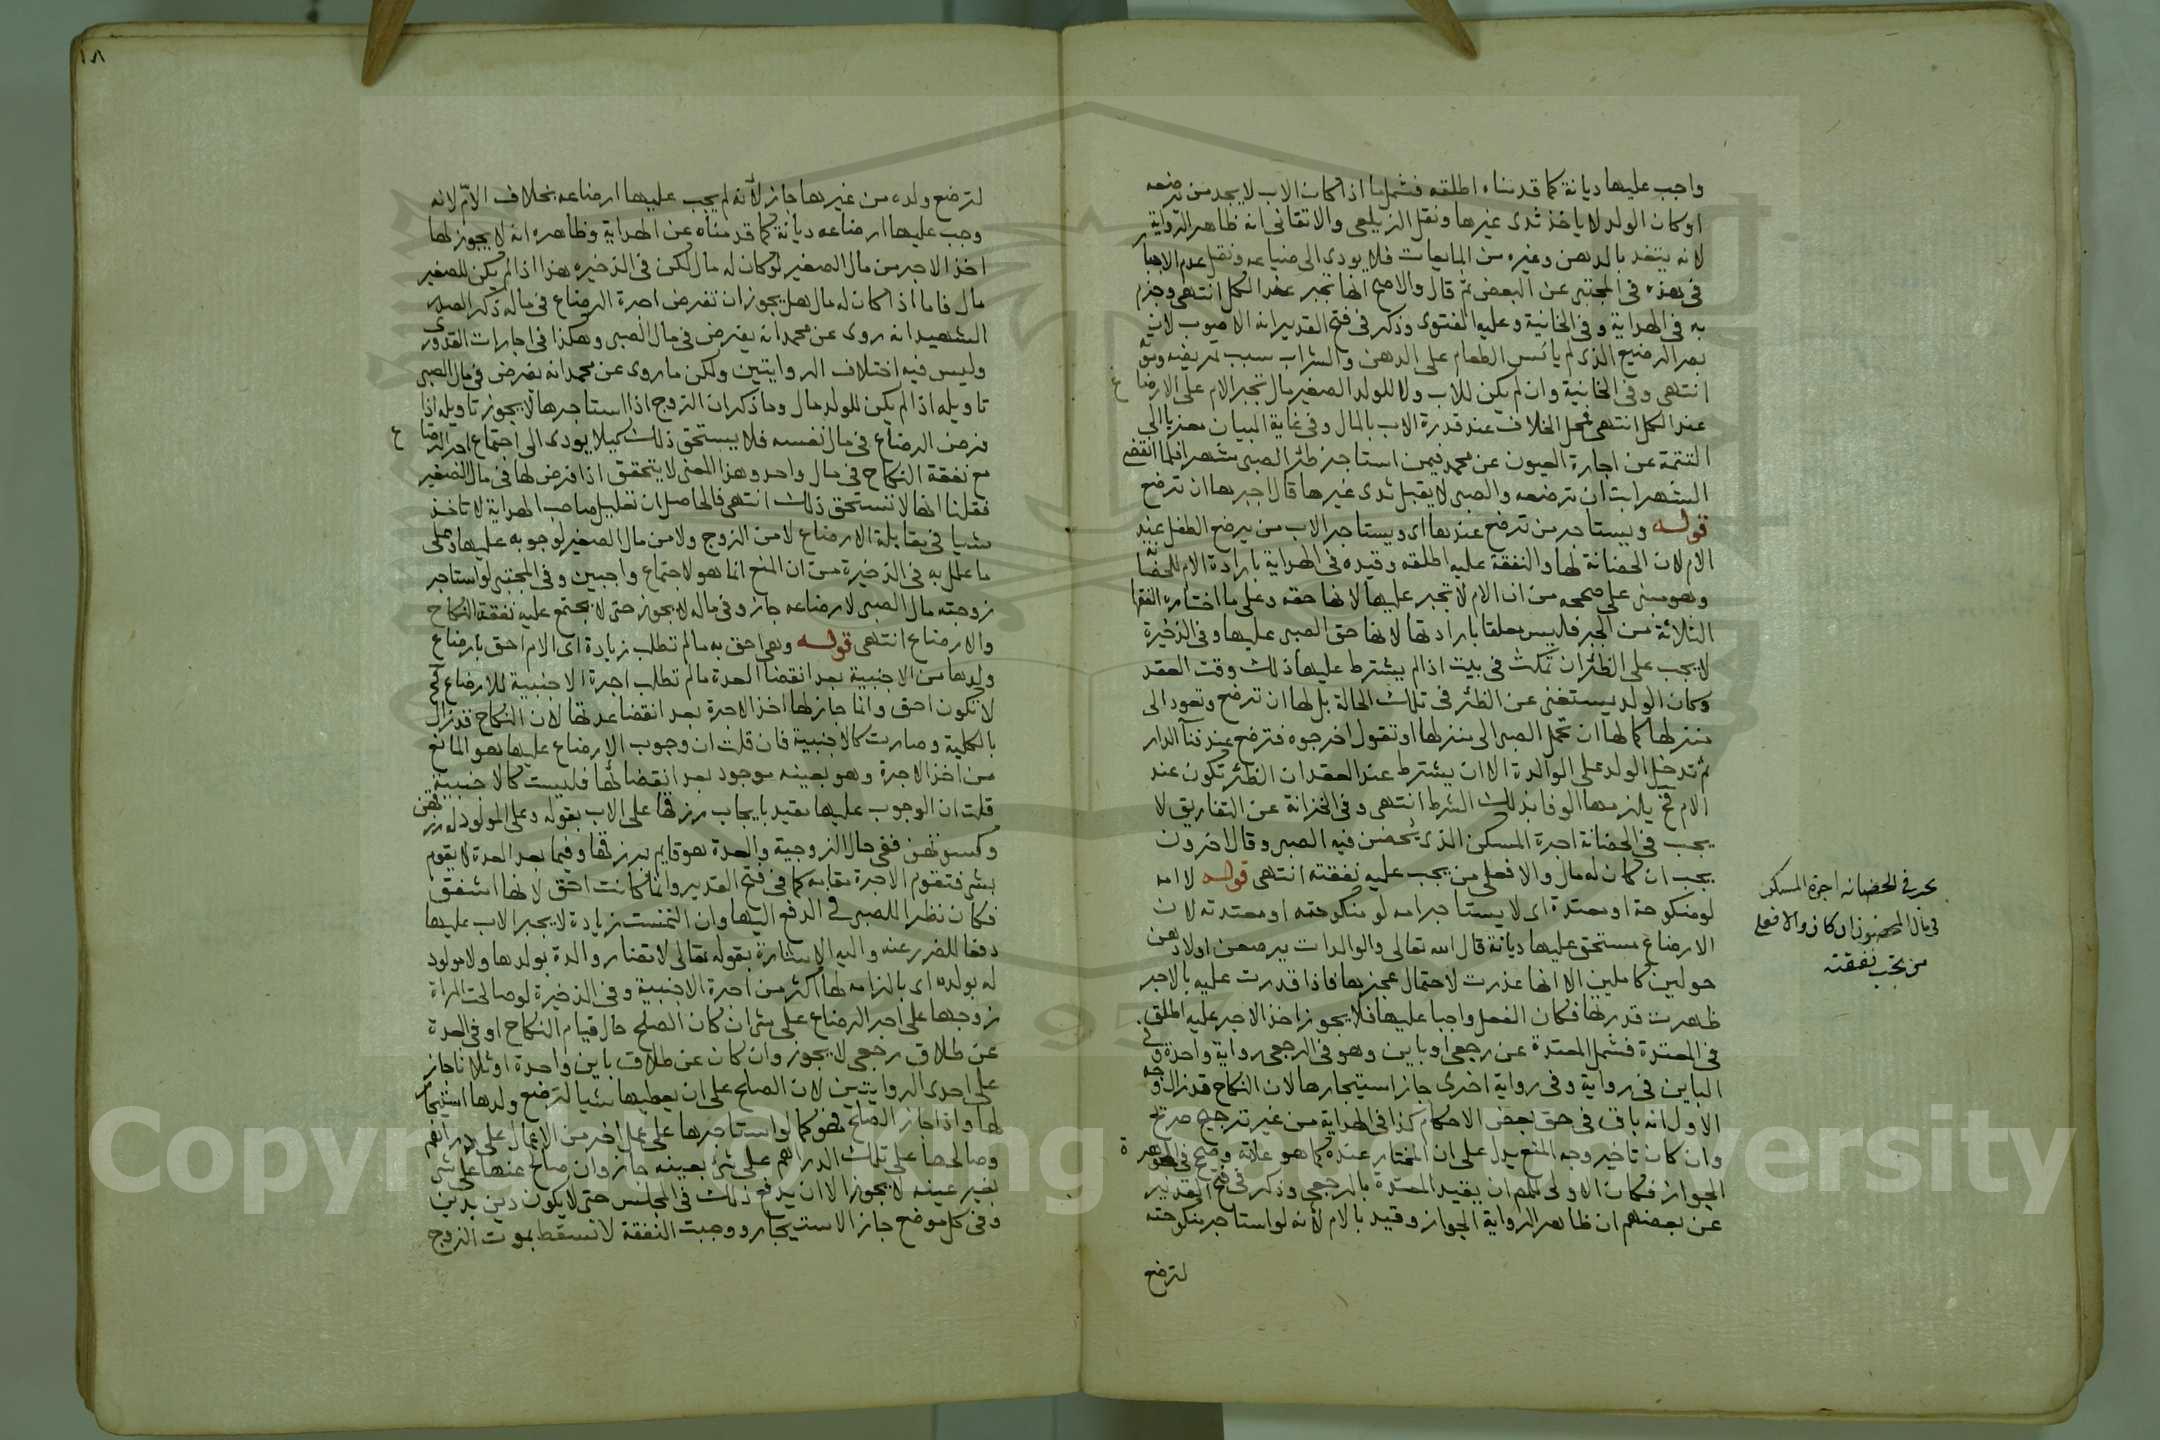 واجب عليها ديانة كما قدمناه اطلقه فشمل ما اذا كان الاب لا يجد من ترضعه
او كان الولد لا ياخذ ثدى غيرها ونقل الزيلعى والاتقانى انه ظاهر الرواية
لانه يتغذ بالدهن وغيره من المايعات فلا يودى الى ضياعه ونقل عدم الاجبار
فى هذه فى المجتبى عن البعض ثم قال والاصح انها تجبر عند الكل انتهى وجزم
به فى الهداية وفى الخانية وعليه الفتوى وذكر فى فتح القدير انه الاصوب لان
قصر الرضيع الذى لم يانس الطعام على الدهن والشراب سبب تمريضه وموته
انتهى وفى الخانية وان لم يكن للاب ولا للولد الصغير مال تجبر الام على الارضاع
عند الكل انتهى فمحل الخلاف عند قدرة الاب بالمال وفى غاية البيان معزيا الى
التتمة عن اجارة العيون عن محمد فيمن استاجر ظئر الصبى شهرا فلما انقضى
الشهر ابت ان ترضعه والصبى لا يقبل ثدى غيرها قال اجبرها ان ترضع
قوله ويستاجر من ترضع عندها اى ويستاجر الاب من يرضع الطفل عند
الام لان الحضانة لها والنفقة عليه اطلقه وقيده فى الهداية بارادة الام للحضانة
وهو مبنى على ما صححه من ان الام لا تجبر عليها لانها حقه وعلى ما اختاره الفقها
الثلاثة من الجبر فليس معلقا بارادتها لانها حق الصبى عليها وفى الذخيرة
لا يجب على الظئر ان تمكث فى بيت اذا لم يشترط عليها ذلك وقت العقد
وكان الولد يستغنى عن الظئر فى تلك الحالة بل لها ان ترضع وتعود الى
منزلها كما لها ان تحمل الصبى الى منزلها او تقول اخرجوه فترضع عند فنآ الدار
ثم تدخل الولد على الوالدة الا ان يشترط عند العقد ان الظئر تكون عند
الام فح يلزمها الوفا بذلك الشرط انتهى وفى الخزانة عن التفاريق لا
يجب فى الحضانة اجرة المسكن الذى يحضن فيه الصبى وقال اخرون
يجب ان كان له مال والا فعلى من يجب عليه نفقته انتهى قوله لا امه
لو منكوحة او معتدة اى لا يستاجر امه لو منكوحته او معتدته لان
الارضاع مستحق عليها ديانة قال الله تعالى والوالدات يرضعن اولادهن
حولين كاملين الا انها عذرت لاحتمال عجزها فاذا قدرت عليه بالاجر
ظهرت قدرتها فكان الفعل واجبا عليها فلا يجوز اخذ الاجر عليه اطلق
فى المعتدة فشمل المعتدة عن رجعى او باين وهو فى الرجعى رواية واحدة وفى
الباين فى رواية وفى رواية اخرى جاز استيجارها لان النكاح قد زال وجه
الاول انه باق فى حق بعض الاحكام كذا فى الهداية من غير ترجيح صريح
وان كان تاخير وجه المنع يدل على ان المختار عنده كما هو عادته وصحح فى الجوهرة
الجواز فكان الاولى للمص ان يقيد المعتدة بالرجعى وذكر فى فتح القدير
عن بعضهم ان ظاهر الرواية الجواز وقيد بالام لانه لو استاجر منكوحته
لترضع
يجب فى الحضانه اجرة المسكن
فى مال المحضون ان كان والا فعلى
من تجب نفقته
١٨١
لترضع ولده من غيرها جاز لانه لم يجب عليها ارضاعه بخلاف الام لانه
وجب عليها ارضاعه ديانة كما قدمناه عن الهداية وظاهره انه لا يجوز لها
اخذ الاجر من مال الصغير لو كان له مال لكن فى الذخيره هذا اذا لم يكن للصغير
مال فاما اذا كان له مال هل يجوز ان تفرض اجرة الرضاع فى ماله ذكر الصدر
الشهيد انه روى عن محمد انه يفرض فى مال الصبى وهكذا فى اجارات القدورى
وليس فيه اختلاف الروايتين ولكن ما روى عن محمد انه يفرض فى مال الصبى
تاويله اذا لم يكن للولد مال وما ذكر ان الزوج اذا استاجرها لا يجوز تاويله اذا
فرض الرضاع فى مال نفسه فلا يستحق ذلك كيلا يودى الى اجتماع اجر الرضاع
مع نفقة النكاح فى مال واحد وهذا المعنى لا يتحقق اذا فرض لها فى مال الصغير
فقلنا انها لا تستحق ذلك انتهى فالحاصل ان تعليل صاحب الهداية لا تاخذ
شيا فى مقابلة الارضاع لا من الزوج ولا من مال الصغير لوجوبه عليها وعلى
ما علل به فى الذخيرة من ان المنع انما هو لاجتماع واجبين وفى المجتبى لو استاجر
زوجته مال الصبى لارضاعه جاز وفى ماله لا يجوز حتى لا يجتمع عليه نفقة النكاح
والارضاع انتهى قوله وهى احق به ما لم تطلب زيادة اى الام احق بارضاع
ولدها من الاجنبية بعد انقضا العدة ما لم تطلب اجرة الاجنبية للارضاع فح
لا تكون احق وانما جاز لها اخذ الاجرة بعد انقضا عدتها لان النكاح قد زال
بالكلية وصارت كالاجنبية فان قلت ان وجوب الارضاع عليها هو المانع
من اخذ الاجرة وهو بعينه موجود بعد انقضائها فليست كالاجنبية
قلت ان الوجوب عليها مقيد بايجاب رزقها على الاب بقوله وعلى المولود له رزقهن
وكسوتهن ففى حال الزوجية والعدة هو قايم برزقها وفيما بعد العدة لا يقوم
بشى فتقوم الاجرة مقامه كما فى فتح القدير وانما كانت احق لانها اشفق
فكان نظرا للصبى فى الدفع اليها وان التمست زيادة لا يجبر الاب عليها
دفعا للضرر عنه واليه الاشارة بقوله تعالى لا تضار والدة بولدها ولا مولود
له بولده اى بالزامه لها اكثر من اجرة الاجنبية وفى الذخيرة لو صالحت المراة
زوجها على اجر الرضاع على شى ان كان الصلح حال قيام النكاح او فى العدة
عن طلاق رجعى لا يجوز وان كان عن طلاق باين واحدة او ثلاثا جاز
على احدى الروايتين لان الصلح على ان يعطيها شيا لترضع ولدها استيجار
لها واذا جاز الصلح فهو كما لو استاجرها على عمل اخر من الاعمال على دراهم
وصالحها على تلك الدراهم على شى بعينه جاز وان صالح عنها على شى
بغير عينه لا يجوز الا ان يدفع ذلك فى المجلس حتى لا يكون دين بدين
وفى كل موضع جاز الاستيجار ووجبت النفقة لا تسقط بموت الزوج
Copyright © King Saud University